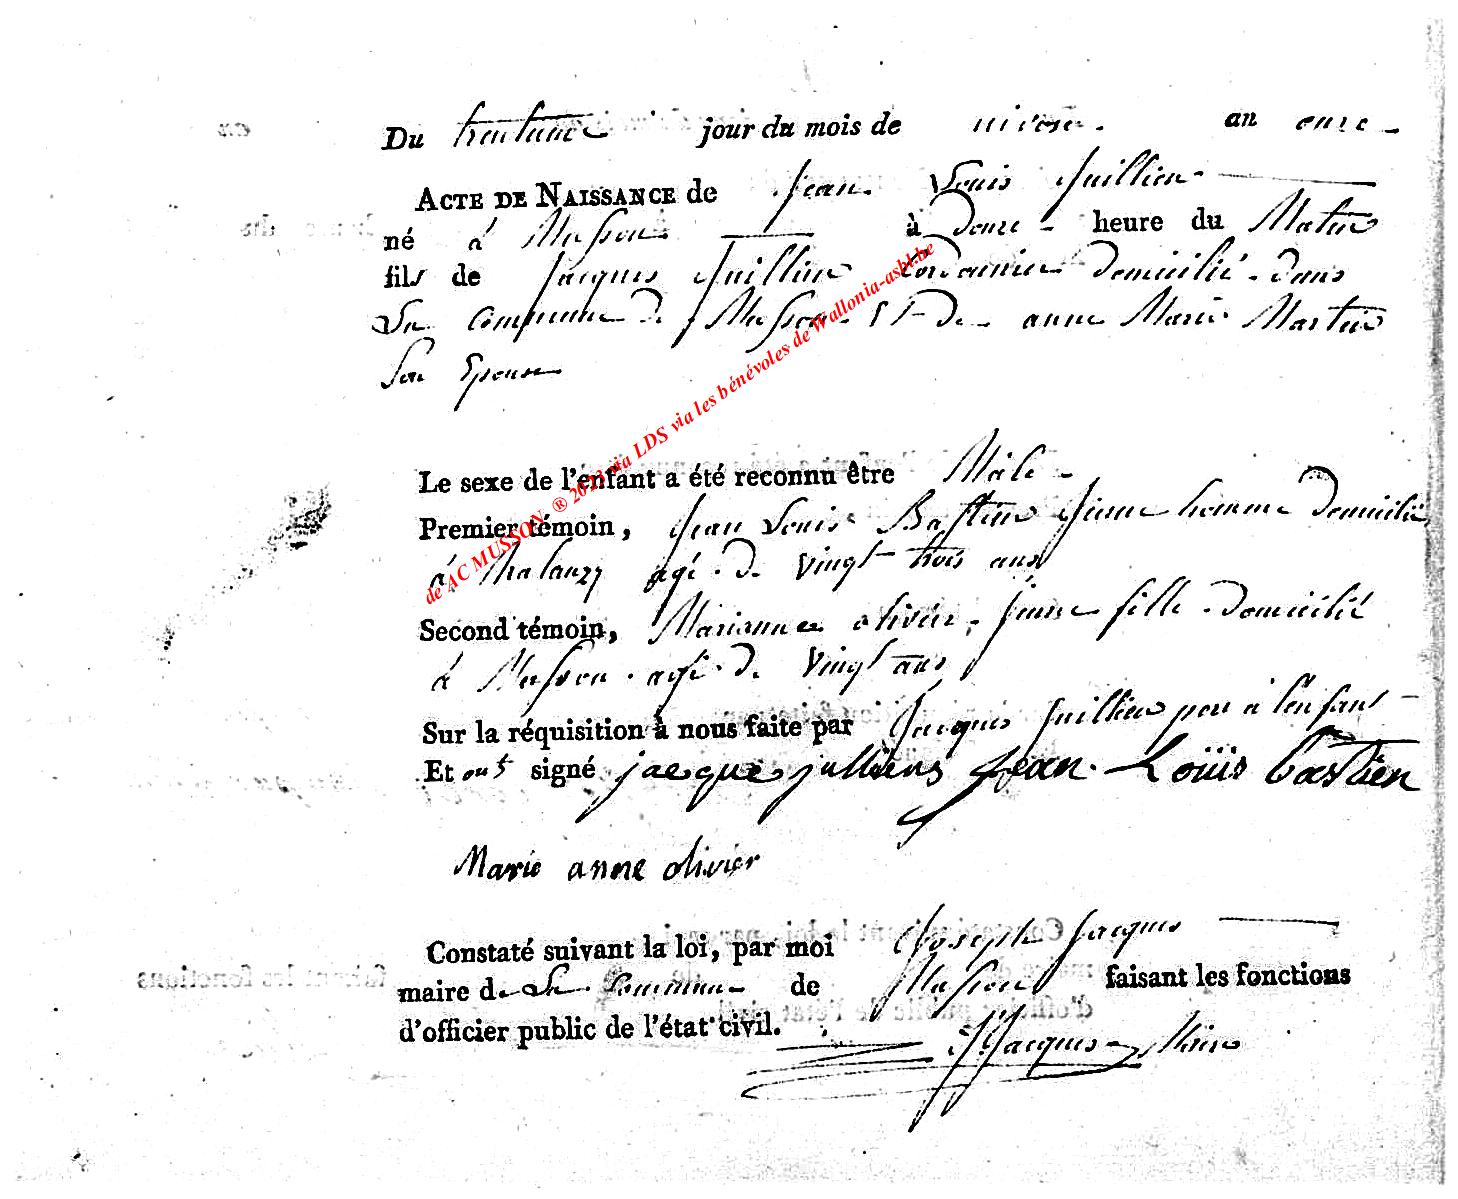 Du trentunie jour du mois de nivose. an onze -
ACTE DE NAISSANCE de Jean Louis Juillien
né à Musson à Douze heure du Matin
fils de Jacques Juillien Cordonnier Domicilié dans
La commune de Musson Et De anne Marie Martin
Son Epouse
Le sexe de l'enfant a été reconnu être Mâle
Premier témoin, Jean Louis Bastien Jeune homme Domicilié
à halanzy agé de vingt trois ans
Second témoin, Marianne olivier, jeune fille domicilié
à Musson agé de Vingt ans
Sur la réquisition à nous faite par Jacques Juillien pere à l'enfant
Et ont signé jacque julliens Jean Loüis bastien
Marie anne olivier
Constaté suivant la loi, par moi Joseph Jacques
maire de La Commune de Musson faisant les fonctions
d'officier public de l'état civil.
J Jacques Maire
de AC MUSSON ® 2023 via LDS via les bénévoles de Wallonia-asbl.be